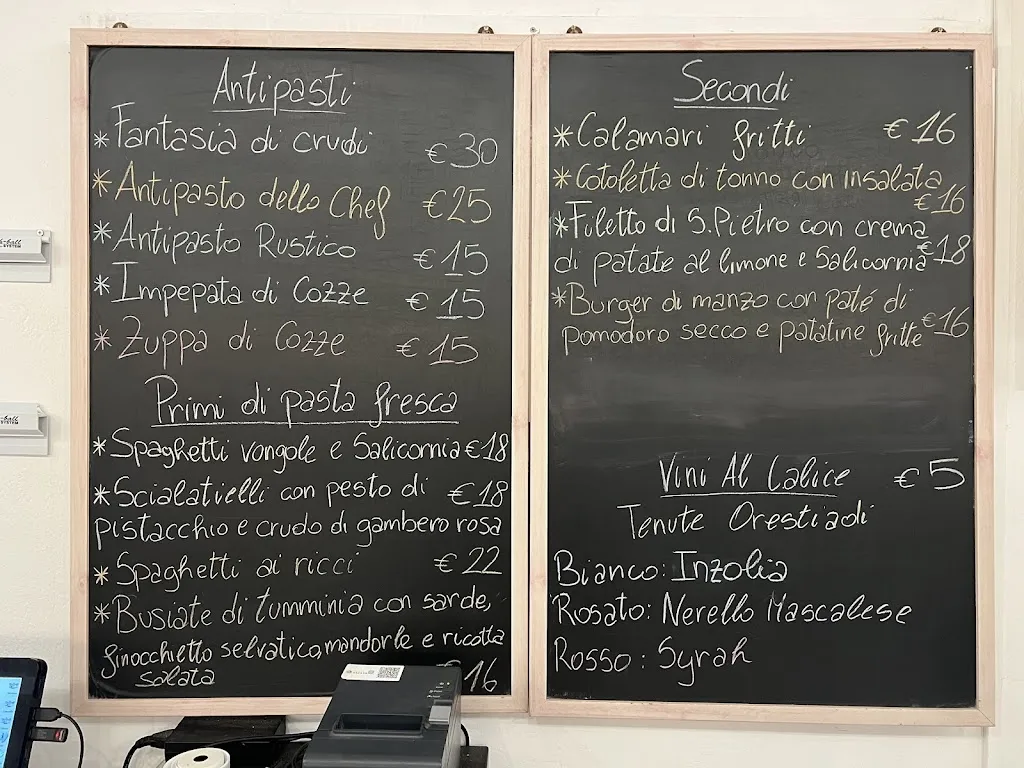 Antipasti
*Fantasia di crudi €30
*Antipasto dello Chef €25
*Antipasto Rustico €15
*Impepata di Cozze €15
*Zuppa di Cozze €15
Primi di pasta fresca
*Spaghetti vongole e Salicornia €18
*Scialatielli con pesto di €18
pistacchio e crudo di gambero rosa
*Spaghetti ai ricci €22
*Busiate di tumminia con sarde,
finocchietto selvatico, mandorle e ricotta
salata €16
Secondi
*Calamari fritti €16
*Cotoletta di tonno con insalata
€16
*Filetto di S.Pietro con crema
di patate al limone e Salicornia €18
*Burger di manzo con paté di
pomodoro secco e patatine fritte €16
Vini Al Calice €5
Tenute Orestiadi
Bianco: Inzolia
Rosato: Nerello Mascalese
Rosso: Syrah